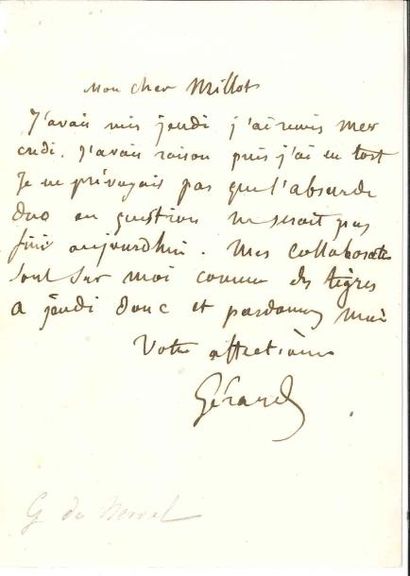 Mon cher Millot
J'avais mis jeudi j'ai remis mer
credi. J'avais raison puis j'ai eu tort
Je ne prévoyais pas que l'absurde
duo en question ne serait pas
fini aujourdhui. Mes collaborateurs
sont sur moi comme des tigres
a jeudi donc et pardonnez moi
Votre affectionné
Gérard
G de Nerval